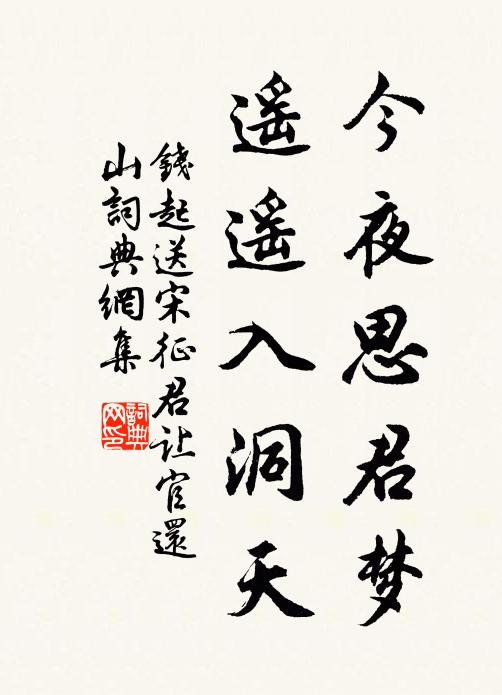 今夜思君梦
遥遥入洞天
錢起送宋征君让官還
山詞典網集
詞典
网印